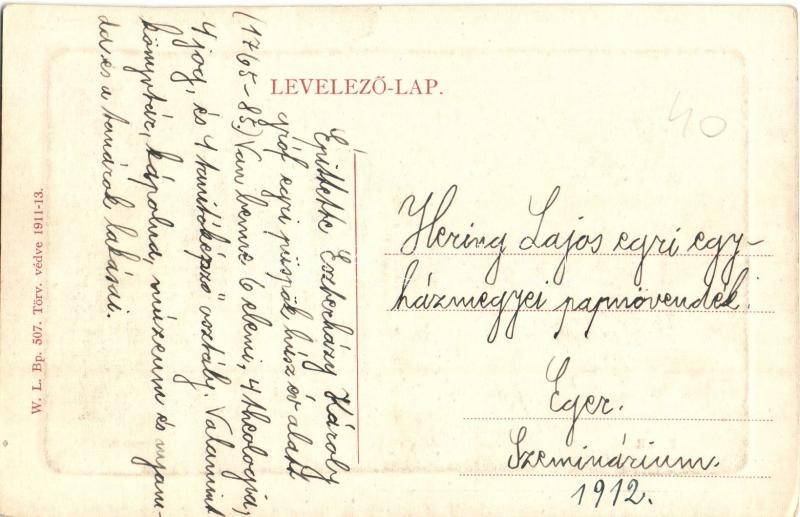 LEVELEZŐ-LAP.
40
Építtette Eszterházy Károly
gróf egri püspök húsz év alatt
(1765-85.) Van benne 6 elemi, 4 theologia,
4 jog, és 4 tanítóképző osztály. Valamint
könyvtár, kápolna, múzeum és nyom-
da és a tanárok lakásai.
Hering Lajos egri egy-
házmegyei papnövendék.
Eger.
Szeminárium.
1912.
W. L. Bp. 507. Törv. védve 1911-13.